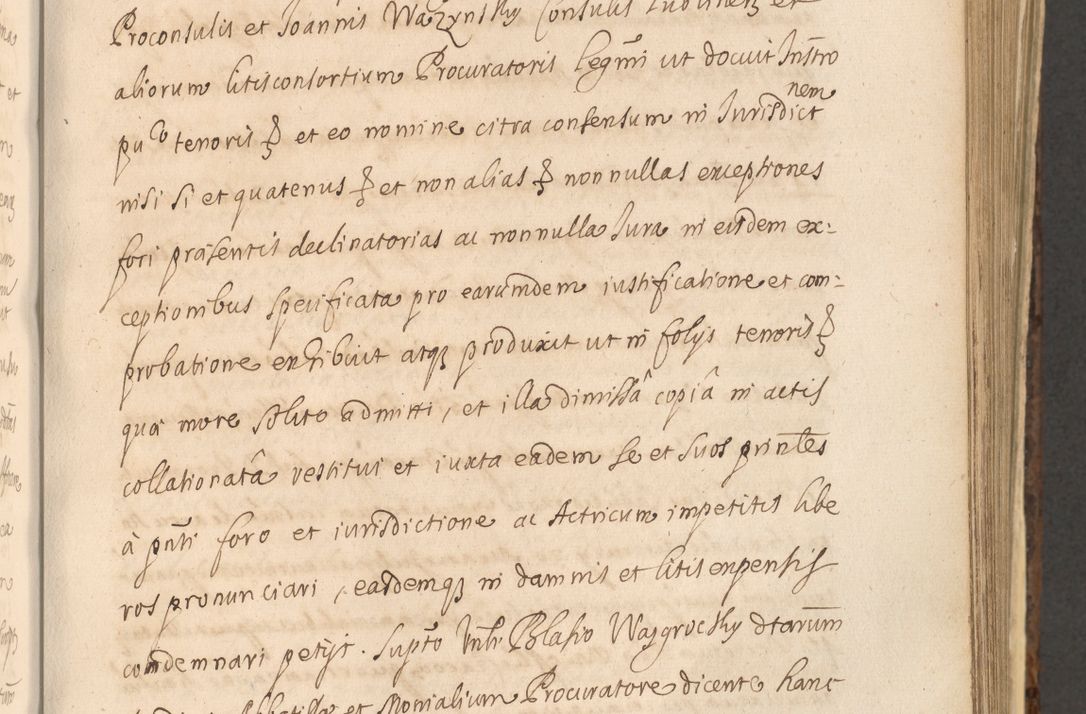 Proconsulis et Joannis Wazynsky Consulis et
aliorum litisconsortium Procuratoris legm̄i ut docuit Jnst̄ro
pu co tenoris et eo nomine citra consensum in Jurisdict nem
nisi si et quatenus et non alias non nullas exceptiones
fori præsentis declinatorias ac nonnulla Jura in eisdem ex:
ceptionibus specificata pro earumdem iustificatione et com:
probatione exhibuit atq3 produxit ut in folys tenoris
quas more solito admitti, et illa dimissâ copiâ in actis
collationatâ restitui et iuxta eadem se et suos prin̄tes
à pn̄ti foro et iurisdictione ac Actricum impetitis libe
ros pronunciari, easdemq3 in damnis et litis expensis
condemnari petijt. Supt̄o Blasio Wazgrocsky dtarum̄
et Monialium Procuratore dicente hanc